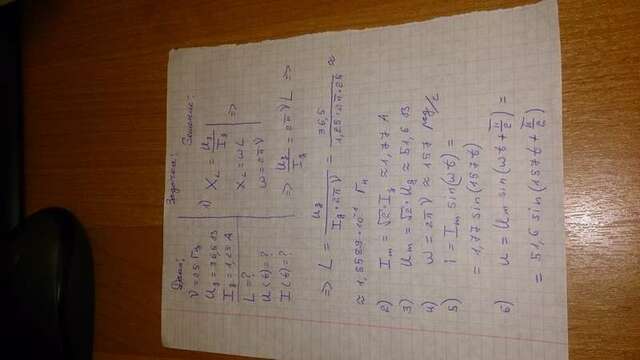 Задача:
Дано:
ν = 25 Гц
U_д = 36,5 В
I_д = 1,25 А
L = ?
U(t) = ?
I(t) = ?
Решение:
1) X_L = U_д / I_д
X_L = ωL
ω = 2πν
=>
=> U_д / I_д = 2πν L =>
=> L = U_д / (I_д · 2πν) = 36,5 / (1,25 · 2π · 25) ≈
≈ 1,8589 · 10⁻¹ Гн
2) I_m = √2 · I_д ≈ 1,77 А
3) U_m = √2 · U_д ≈ 51,6 В
4) ω = 2πν ≈ 157 рад/с
5) i = I_m sin(ωt) =
= 1,77 sin(157t)
6) u = U_m sin(ωt + π/2) =
= 51,6 sin(157t + π/2)